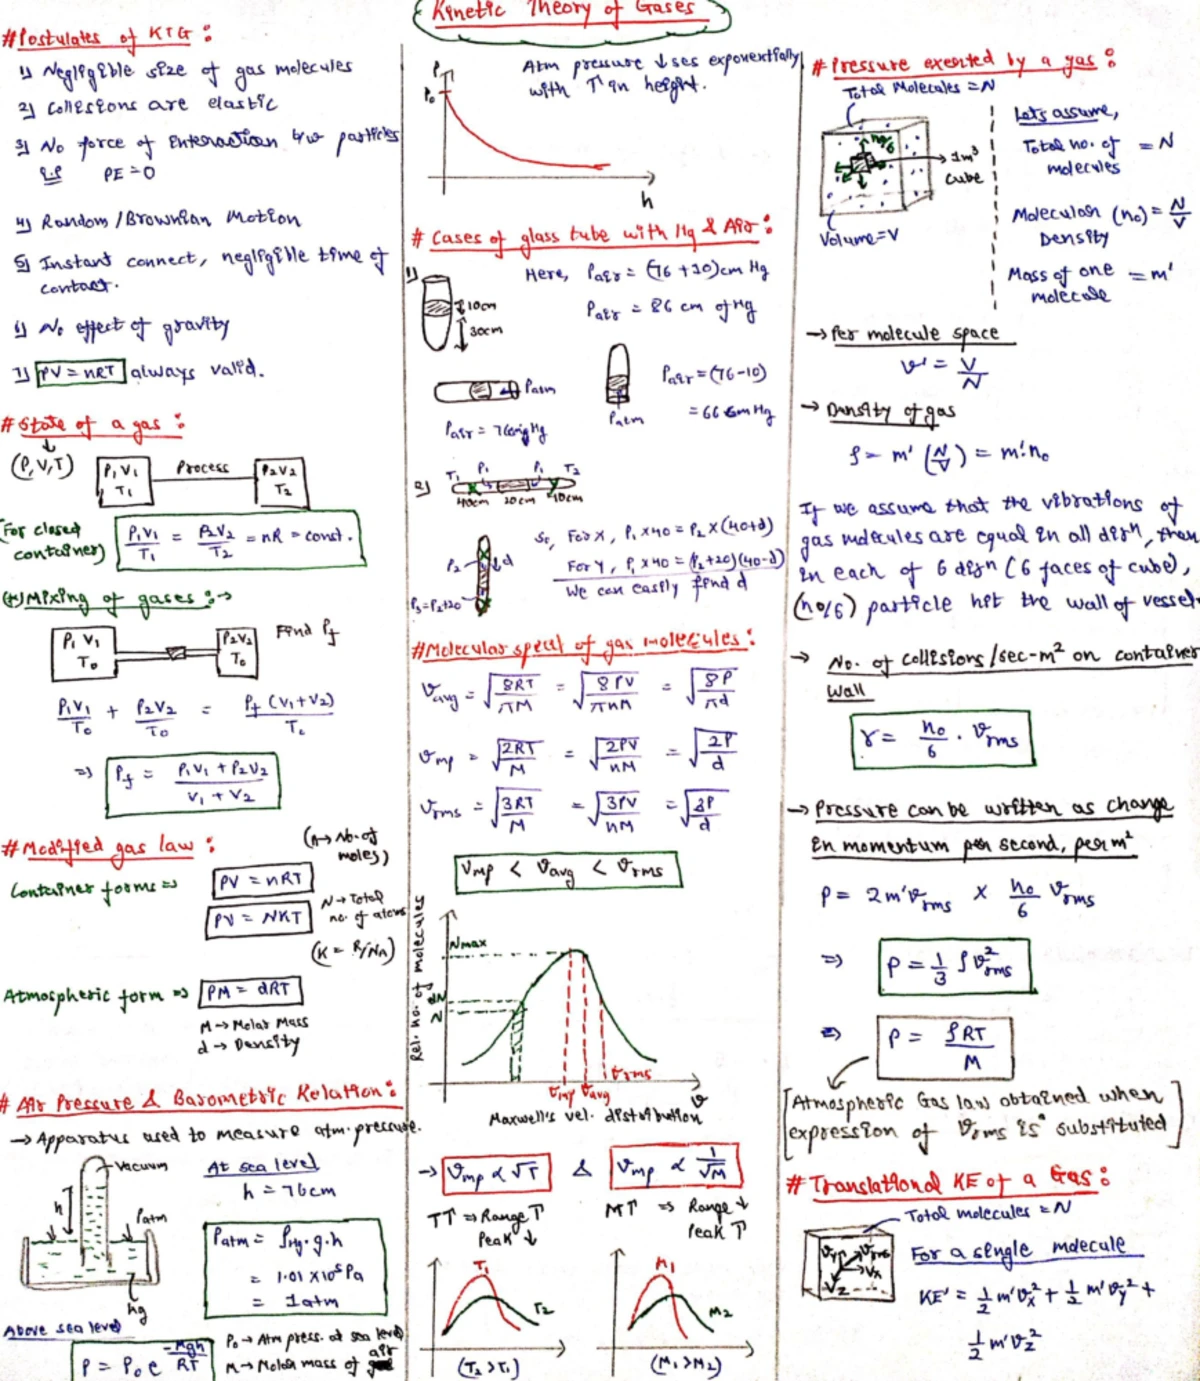 Kinetic Theory of Gases
#Postulates of KTG :
1) Negligible size of gas molecules
2) Collisions are elastic
3) No force of interaction b/w particles
i.e PE = 0
4) Random/Brownian Motion
5) Instant connect, negligible time of
contact.
6) No effect of gravity
7) PV = nRT always valid.
#State of a gas :
(P,V,T)
P1 V1
T1
Process
P2V2
T2
(For closed
container)
P1V1/T1 = P2V2/T2 = nR = const.
(*) Mixing of gases :→
P1 V1
T0
P2V2
T0
Find Pf
P1V1/T0 + P2V2/T0 = Pf (V1+V2)/T0
⇒ Pf = P1V1 + P2V2 / V1 + V2
#Modified gas law :
(n→ No. of
moles)
Container forms ⇒ PV = nRT
PV = NKT
N→ Total
no. of atoms
(K = R/NA)
Atmospheric form ⇒ PM = dRT
M → Molar Mass
d → Density
# Air Pressure & Barometric Relation :
→ Apparatus used to measure atm. pressure.
Vacuum
h
Patm
Hg
At sea level
h = 76cm
Patm = ρHg.g.h
= 1.01 ×10⁵ Pa
= 1atm
Above sea level
P = P0 e^(-Mgh/RT)
P0 → Atm press. at sea level
M → Molar mass of air
P
P0
h
Atm pressure ↓ses exponentially
with ↑ in height.
# Cases of glass tube with Hg & Air :
1)
10cm
30cm
Here, Pair = (76 +10)cm Hg
Pair = 86 cm of Hg
Patm
Pair = 76cm Hg
Patm
Pair = (76-10)
= 66 cm Hg
2)
T1 P1 P1 T2
40cm 20cm 40cm
P2
d
P3=P2+20
So, For X, P1 ×40 = P2 × (40+d)
For Y, P1 ×40 = (P2+20)(40-d)
We can easily find d
#Molecular speed of gas molecules :
Vavg = √(8RT/πM) = √(8PV/πnM) = √(8P/πd)
Vmp = √(2RT/M) = √(2PV/nM) = √(2P/d)
Vrms = √(3RT/M) = √(3PV/nM) = √(3P/d)
Vmp < Vavg < Vrms
Rel. no. of molecules
Nmax
dN
N
Vmp Vavg Vrms
v
Maxwell's vel. distribution
→ Vmp ∝ √T & Vmp ∝ 1/√M
T↑ ⇒ Range ↑
Peak ↓
M↑ ⇒ Range ↓
Peak ↑
T1
T2
(T2 > T1)
M1
M2
(M1 > M2)
# Pressure exerted by a gas :
Total Molecules = N
n0/6
1m³
cube
Volume = V
Lets assume,
Total no. of = N
molecules
Molecular (n0) = N/V
Density
Mass of one = m'
molecule
→ Per molecule space
v' = V/N
→ Density of gas
ρ = m' (N/V) = m'.n0
If we assume that the vibrations of
gas molecules are equal in all dirⁿ, then
in each of 6 dirⁿ (6 faces of cube),
(n0/6) particle hit the wall of vessel.
→ No. of collisions/sec-m² on container
wall
r = n0/6 . Vrms
→ Pressure can be written as change
in momentum per second, per m²
P = 2m'Vrms × n0/6 Vrms
⇒ P = 1/3 ρV²rms
⇒ P = ρRT/M
[Atmospheric Gas law obtained when
expression of Vrms is substituted]
# Translational KE of a Gas :
Total molecules = N
Vy Vrms
Vx
Vz
For a single molecule
KE' = 1/2 m'Vx² + 1/2 m'Vy² +
1/2 m'Vz²